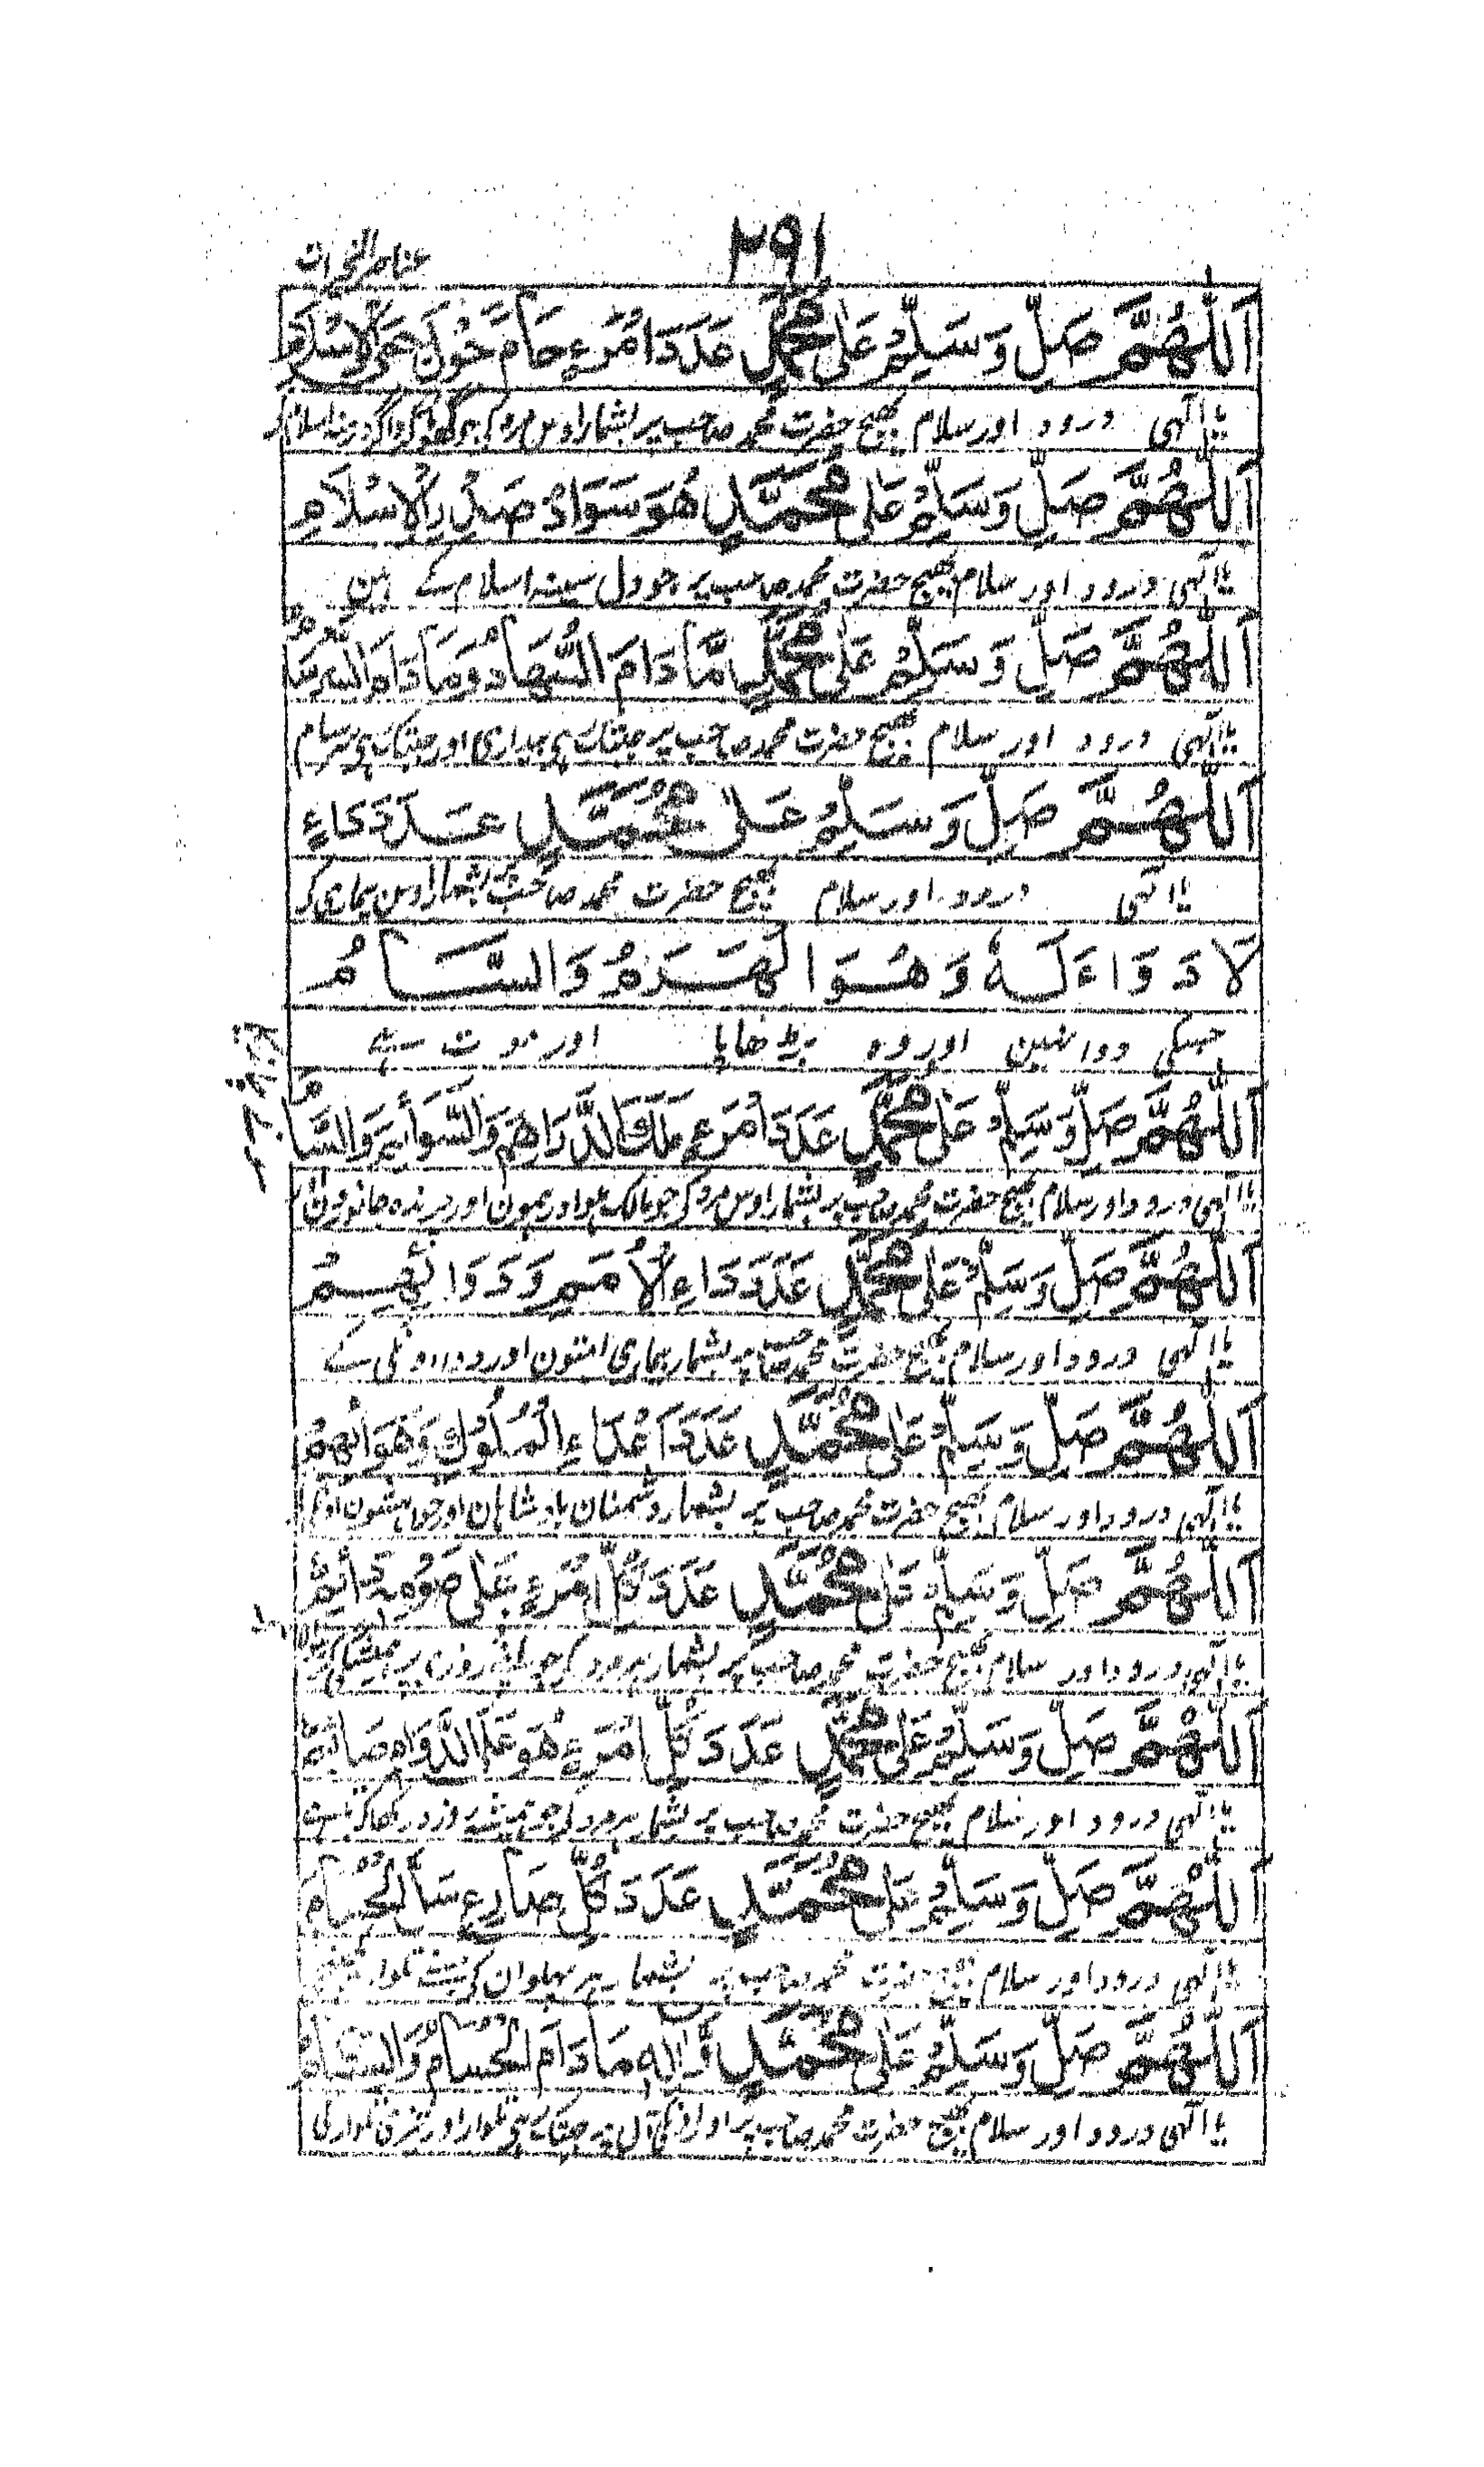 ۲۹۱
عناصر الخیرات
اَللّٰهُمَّ صَلِّ وَسَلِّمْ عَلٰی مُحَمَّدٍ عَدَدَ امْرَءٍ حَامَ حَوْلَ حِمَی الْاِسْلَامِ
یا الٰہی درود اور سلام بھیج حضرت محمد صاحب پر بشمار اوس مرد کی جو گھوما گرداگرد اسلام
اَللّٰهُمَّ صَلِّ وَسَلِّمْ عَلٰی مُحَمَّدٍ هُوَ سَوَادُ صَدْرِ الْاِسْلَامِ
یا الٰہی درود اور سلام بھیج حضرت محمد صاحب پر جو دل سینہ اسلام کے ہین
اَللّٰهُمَّ صَلِّ وَسَلِّمْ عَلٰی مُحَمَّدٍ مَّا دَامَ السُّهَادُ وَمَا دَامَ
یا الٰہی درود اور سلام بھیج حضرت محمد صاحب پر جبتک ہی بیداری اور جبتک ہی سرسام
اَللّٰهُمَّ صَلِّ وَسَلِّمْ عَلٰی مُحَمَّدٍ عَدَدَ دَاءٍ
یا الٰہی درود اور سلام بھیج حضرت محمد صاحب پر بشمار اوس بیماری کی
لَا دَوَاءَ لَهٗ وَهُوَ الْهَرَمُ وَالسَّامُ
جسکی دوا نہین اور وہ بڑھاپا اور موت ہے
اَللّٰهُمَّ صَلِّ وَسَلِّمْ عَلٰی مُحَمَّدٍ عَدَدَ امْرَءٍ مَلَكَ الدَّرَاهِمَ وَالسَّوَائِمَ وَالسَّامَ
یا الٰہی درود اور سلام بھیج حضرت محمد صاحب پر بشمار اوس مرد کی جو مالک ہوا درہمون اور چرندہ جانورون
اَللّٰهُمَّ صَلِّ وَسَلِّمْ عَلٰی مُحَمَّدٍ عَدَدَ دَاءِ الْاُمَمِ وَدَوَائِهِمْ
یا الٰہی درود اور سلام بھیج حضرت محمد صاحب پر بشمار بیماری امتون اور دوا اونکی کے
اَللّٰهُمَّ صَلِّ وَسَلِّمْ عَلٰی مُحَمَّدٍ عَدَدَ اَعْدَاءِ الْمُلُوْكِ وَهَوَائِهِمْ
یا الٰہی درود اور سلام بھیج حضرت محمد صاحب پر بشمار دشمنان بادشاہان اور خواہشون
اَللّٰهُمَّ صَلِّ وَسَلِّمْ عَلٰی مُحَمَّدٍ عَدَدَ كُلِّ امْرَءٍ عَلٰی صَوْمِهٖ دَائِمٌ
یا الٰہی درود اور سلام بھیج حضرت محمد صاحب پر بشمار ہر مرد کی جو اپنے روزہ پر
اَللّٰهُمَّ صَلِّ وَسَلِّمْ عَلٰی مُحَمَّدٍ عَدَدَ كُلِّ امْرَءٍ هُوَ عَلَی الدَّوَامِ صَائِمٌ
یا الٰہی درود اور سلام بھیج حضرت محمد صاحب پر بشمار ہر مرد کی جو ہمیشہ روزہ رکھا کرتا ہے
اَللّٰهُمَّ صَلِّ وَسَلِّمْ عَلٰی مُحَمَّدٍ عَدَدَ كُلِّ صَارِعٍ سَلَّ الْحُسَامَ
یا الٰہی درود اور سلام بھیج حضرت محمد صاحب پر بشمار ہر پہلوان کی جسنے تلوار
اَللّٰهُمَّ صَلِّ وَسَلِّمْ عَلٰی مُحَمَّدٍ وَّاٰلِهٖ مَا دَامَ الْحُسَامُ
یا الٰہی درود اور سلام بھیج حضرت محمد صاحب پر اور اونکی آل پر جبتک ہی تلوار اور تیزی تلوار کی